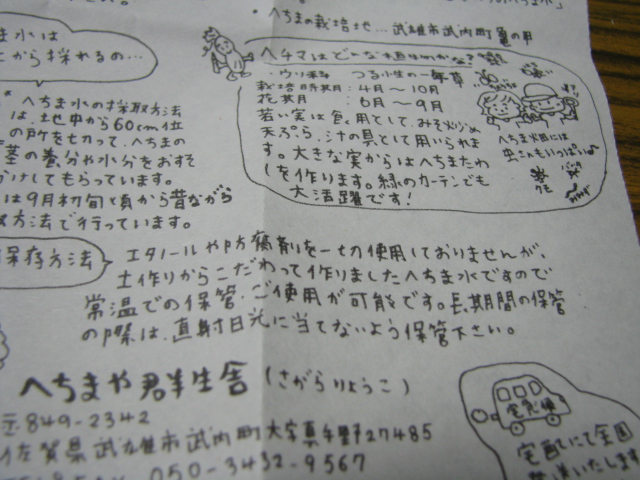 ・へちまの栽培地…武雄市武内町亀の甲
ま水は
から採れるの…
ヘチマはどんな植物かな?
・ウリ科 つる性の一年草
栽培時期:4月〜10月
花期 :6月〜9月
若い実は食用として、みそ炒め
天ぷら、汁の具として用いられま
す。大きな実からはへちまたわ
しを作ります。緑のカーテンでも
大活躍です!
へちま畑には
虫さんもいっぱい
クモ
へちま水の採取方法
は、地中から60cm位
の所を切って、へちまの
茎の養分や水分をおすそ
わけしてもらっています。
は9月初旬頃から昔ながら
方法で行っています。
保存方法
エタノールや防腐剤を一切使用しておりませんが、
土作りからこだわって作りましたへちま水ですので
常温での保管、ご使用が可能です。長期間の保管
の際は、直射日光に当てないよう保管下さい。
へちまや群生舎(さがらりょうこ)
〒849-2342
佐賀県武雄市武内町大字真手野27485
050-3432-9567
宅急便
宅配にて全国